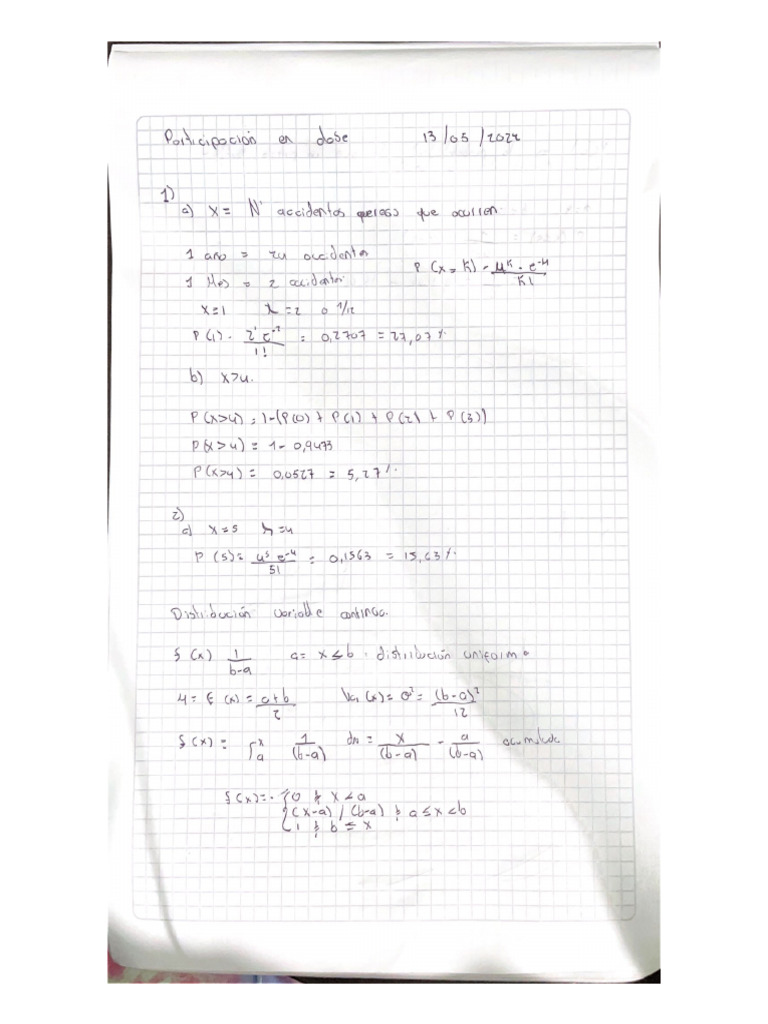 Participación en clase 13/05/2024
1)
a) X = N° accidentes que ocurren
1 año = 24 accidentes
1 Mes = 2 accidentes
P(x=k) = μ^k · e^-μ / k!
x=1 λ=2 o 1/12
P(1) = 2^1 e^-2 / 1! = 0,2707 = 27,07%
b) x>4.
P(x>4) = 1-(P(0) + P(1) + P(2) + P(3))
P(x>4) = 1 - 0,9473
P(x>4) = 0,0527 = 5,27%
2)
a) x=5 λ=4
P(5) = 4^5 e^-4 / 5! = 0,1563 = 15,63%
Distribución variable continua.
f(x) 1 / b-a a= x ≤ b distribución uniforme
μ = E(x) = a+b / 2 Var(x) = σ² = (b-a)² / 12
f(x) = ∫_a^x 1 / (b-a) dn = x / (b-a) - a / (b-a) acumulada
f(x) = { 0 & x < a
(x-a) / (b-a) & a ≤ x < b
1 & b ≤ x